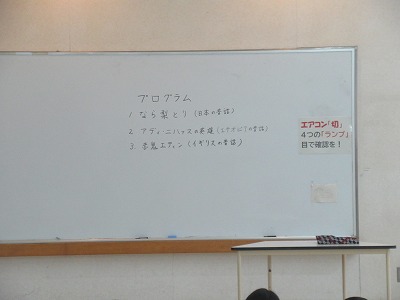 プログラム
1 なら梨とり(日本の昔話)
2 アディ・ニハァスの英雄(エチオピアの昔話)
3 赤鬼エティン(イギリスの昔話)
エアコン「切」
4つの「ランプ」
目で確認を！